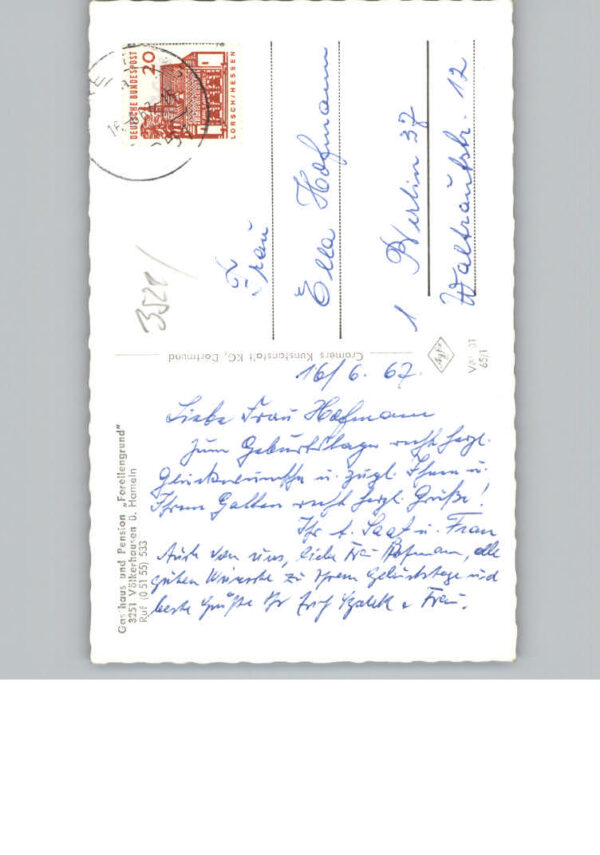 DEUTSCHE BUNDESPOST
20
LORSCH/HESSEN
Frau
Ella Hofmann
1 Berlin 37
Waltrautstr. 12
3528/
Cramers Kunstanstalt KG, Dortmund
Agfa
65/1
16/6. 67.
Liebe Frau Hofmann
Zum Geburtstage recht herzl.
Glückwünsche u. zugl. Ihnen u.
Ihrem Gatten recht herzl. Grüße!
Ihr u. Frau
Auch von uns, liebe Frau Hofmann, alle
guten Wünsche zu Ihrem Geburtstage und
beste Grüße Ihr Erich u. Frau.
Gasthaus und Pension „Forellengrund"
3251 Völkerhausen ü. Hameln
Ruf (0 51 55) 533